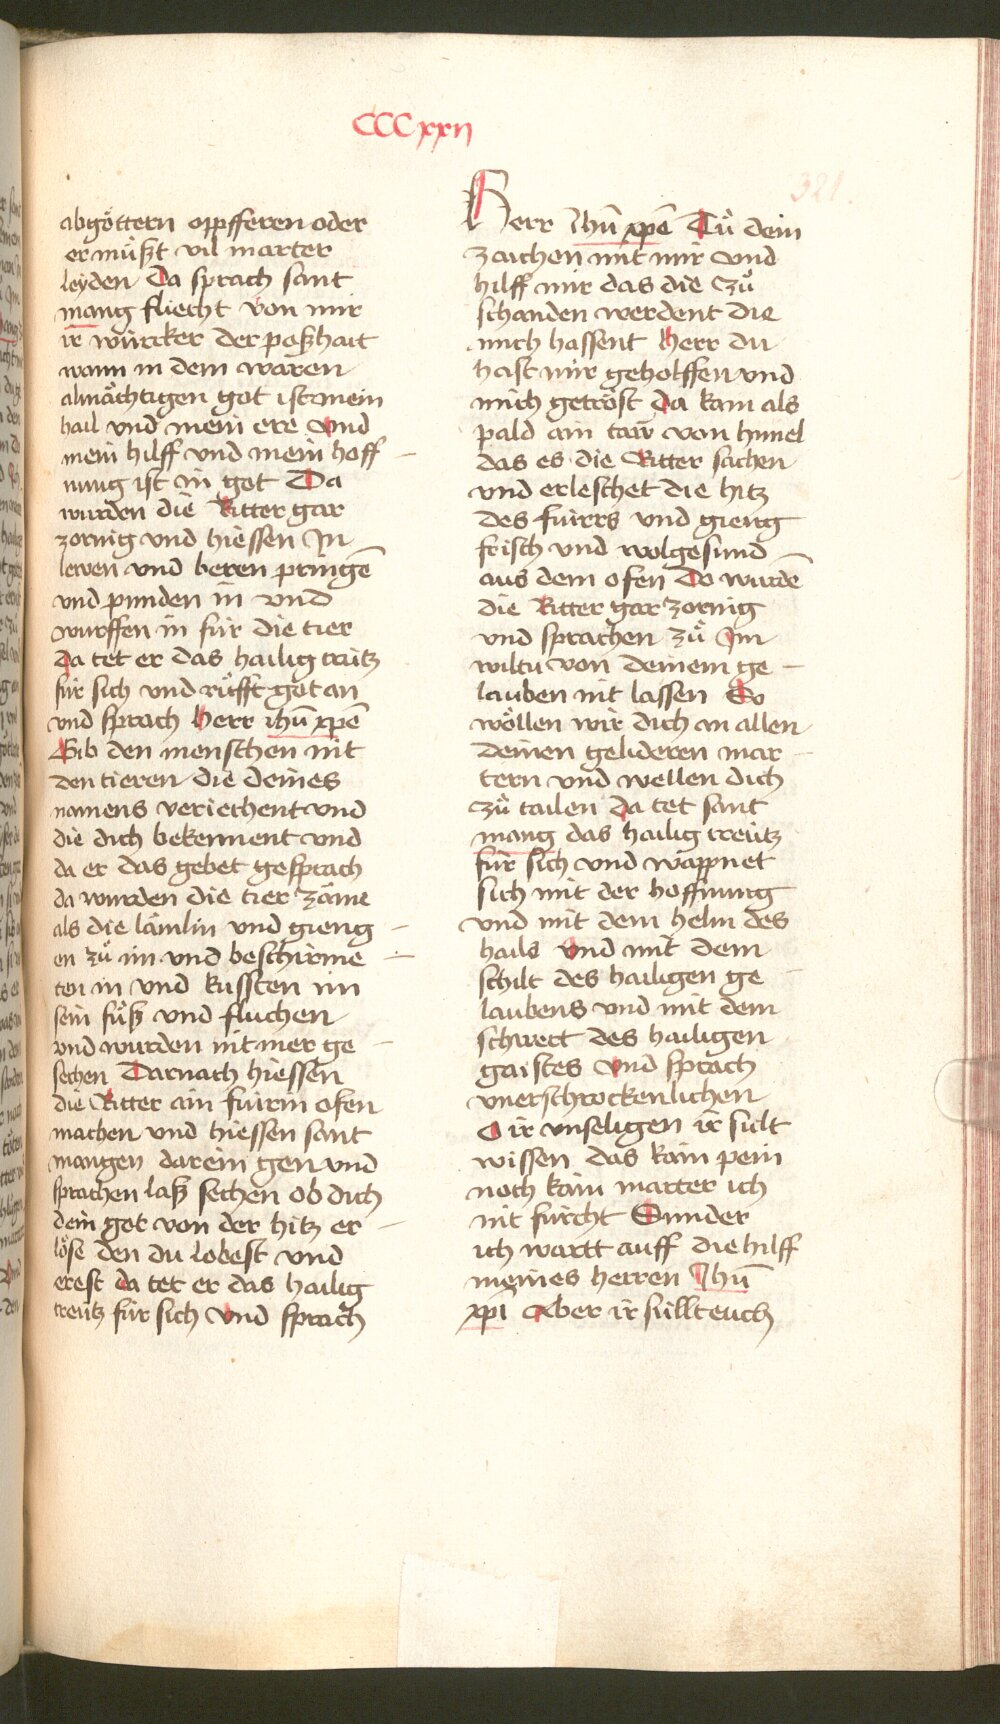 CCCxxii
321.
abgöttern opfferen oder
er müßt vil marter
leyden Da sprach sant
mang fliecht von mir
ir würcker der poßhait
wann in dem waren
almächtigen got ist mein
hail und mein ere Und
mein hilff und mein hoff
nung ist in got Da
wurden die Ritter gar
zornig und hiessen Jn
lewen und beren pringē
und punden in und
wurffen in für die tier
da tet er das hailig creütz
für sich und rüfft got an
und sprach Herr ihū xpē
Gib den menschen nit
den tieren die deines
namens veriechent und
die dich bekennent und
da er das gebet gesprach
da wurden die tier zäme
als die lämlin und gieng
en zů im und beschirme
ten in und kussten im
sein füß und fluchen
und wurden nit mer ge
sechen Darnach hiessen
die Ritter ain fuirin ofen
machen und hiessen sant
mangen darein gen und
sprachen laß sechen ob dich
dein got von der hitz er
löse den du lobest und
erest da tet er das hailig
creütz für sich Und sprach
Herr Jhū xpē Tů dein
zaichen mit mir und
hilff mir das die zů
schanden werdent die
mich hassent Herr du
hast mir geholffen und
mich getröst Da kam als
pald ain taw von himel
das es die Ritter sachen
und erleschet die hitz
des fuirrs und gieng
frisch und wolgesund
aus dem ofen Do wurdē
die Ritter gar zornig
und sprachen zů Jm
wiltu von deinem ge
lauben nit lassen So
wöllen wir dich an allen
deinen gelideren mar
tern und wellen dich
zů tailen Da tet sant
mang das hailig creütz
für sich und wappnet
sich mit der hoffnung
und mit dem helm des
hails Und mit dem
schilt des hailigen ge
laubens und mit dem
schwert des hailigen
gaistes Und sprach
unerschrockenlichen
O ir unseligen ir sült
wissen das kain pein
noch kain marter ich
nit fürcht Sunder
ich wartt auff die hilff
meines herren Jhū
xpi Aber ir süllt euch